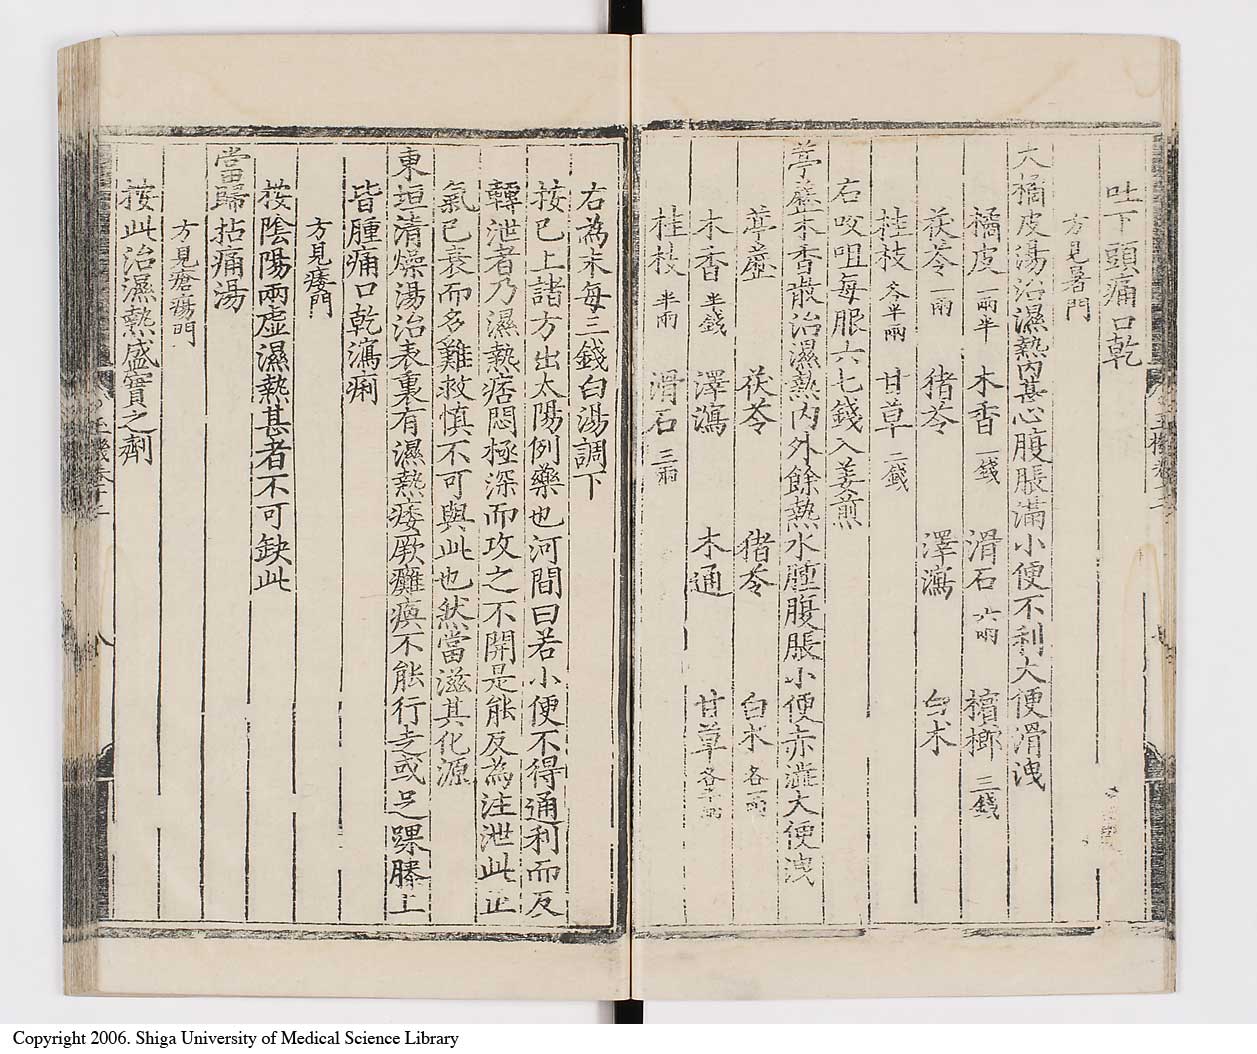 吐下頭痛口乾
方見暑門
大橘皮湯治濕熱內甚心腹脹滿小便不利大便滑洩
橘皮一兩半 木香一錢 滑石六兩 檳榔三錢
茯苓一兩 猪苓 澤瀉 白木
桂枝各半兩 甘草二錢
右㕮咀每服六七錢入姜煎
葶藶木香散治濕熱內外餘熱水腫腹脹小便赤澁大便洩
葶藶 茯苓 猪苓 白木各一兩
木香半錢 澤瀉 木通 甘草各半兩
桂枝半兩 滑石三兩
右為末每三錢白湯調下
按已上諸方出太陽例藥也河間曰若小便不得通利而反
轉泄者乃濕熱痞悶極深而攻之不開是能反為注泄此正
氣已衰而多難救慎不可與此也然當滋其化源
東垣清燥湯治表裏有濕熱痿厥癱瘓不能行走或足踝膝上
皆腫痛口乾瀉痢
方見痿門
按陰陽兩虛濕熱甚者不可缺此
當歸拈痛湯
方見瘡瘍門
按此治濕熱盛實之劑
玉機卷十二
八
Copyright 2006. Shiga University of Medical Science Library